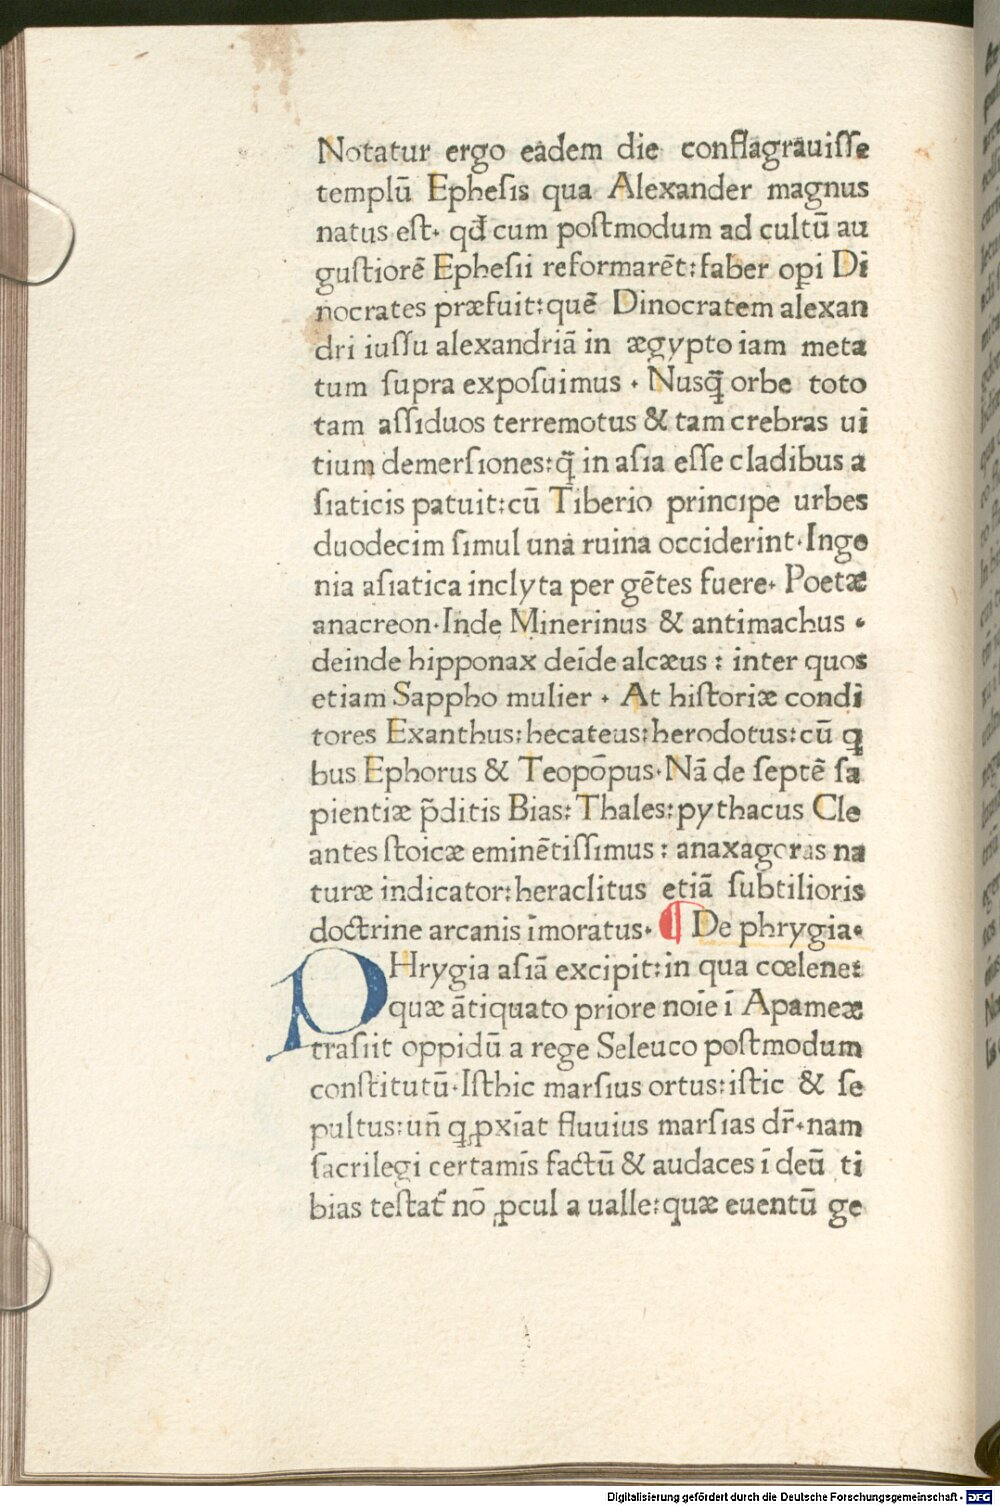 Notatur ergo eadem die conflagrauiſſe
templū Epheſis qua Alexander magnus
natus eſt. qđ cum poſtmodum ad cultū au
guſtiorē Epheſii reformarēt: faber opi Di
nocrates præfuit: quē Dinocratem alexan
dri iuſſu alexandriā in ægypto iam meta
tum ſupra expoſuimus . Nusq̄ orbe toto
tam aſſiduos terremotus & tam crebras ui
tium demerſiones: q̄ in aſia eſſe cladibus a
ſiaticis patuit: cū Tiberio principe urbes
duodecim ſimul una ruina occiderint. Inge
nia aſiatica inclyta per gētes fuere. Poetæ
anacreon. Inde Minerinus & antimachus .
deinde hipponax deīde alcæus : inter quos
etiam Sappho mulier . At hiſtoriæ condi
tores Exanthus: hecateus: herodotus: cū ꝗ
bus Ephorus & Teopōpus. Nā de ſeptē ſa
pientiæ p̄ditis Bias: Thales: pythacus Cle
antes ſtoicæ eminētiſſimus : anaxagoras na
turæ indicator: heraclitus etiā ſubtilioris
doctrine arcanis īmoratus. ¶ De phrygia.
PHrygia aſiā excipit: in qua cœlene:
quæ ātiquato priore noīe ī Apameæ
trāſiit oppidū a rege Seleuco poſtmodum
conſtitutū. Iſthic marſius ortus: iſtic & ſe
pultus: uñ ꝗ ꝓxīat fluuius marſias dr̄. nam
ſacrilegi certamīs factū & audaces ī deū ti
bias teſtat᷑ nō ꝓcul a ualle: quæ euentū ge
Digitalisierung gefördert durch die Deutsche Forschungsgemeinschaft - DFG